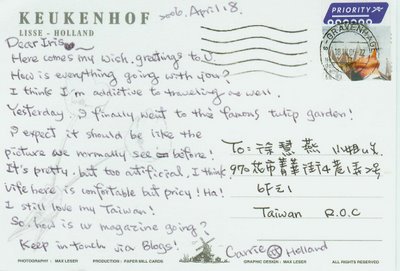 KEUKENHOF
LISSE - HOLLAND
2006. April. 8.
PRIORITY
'S-GRAVENHAGE
Dear Iris
Here comes my wish, greetings to U.
How is everything going with you?
I think I'm addictive to traveling as well.
Yesterday, I finally went to the famous tulip garden!
I expect it should be like the
picture we normally see before!
It's pretty, but too artificial, I think.
Life here is comfortable but pricy! Ha!
I still love my Taiwan!
So, how is ur magazine going?
Keep in touch via Blogs!
Carrie @ Holland
To: 徐慧燕 小姐
970 花市菁華街
6F之1
Taiwan R.O.C
ALL RIGHTS RESERVED
PHOTOGRAPHY : MAX LESER
PRODUCTION : PAPER MILL CARDS
GRAPHIC DESIGN : MAX LESER